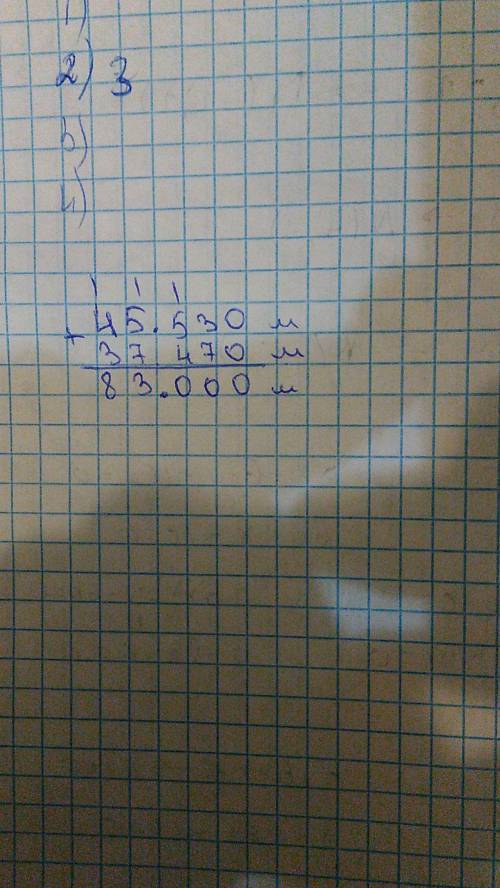 1)
2) 3
3)
4)
1 1 1
+ 45.530 м
37 470 м
83.000 м